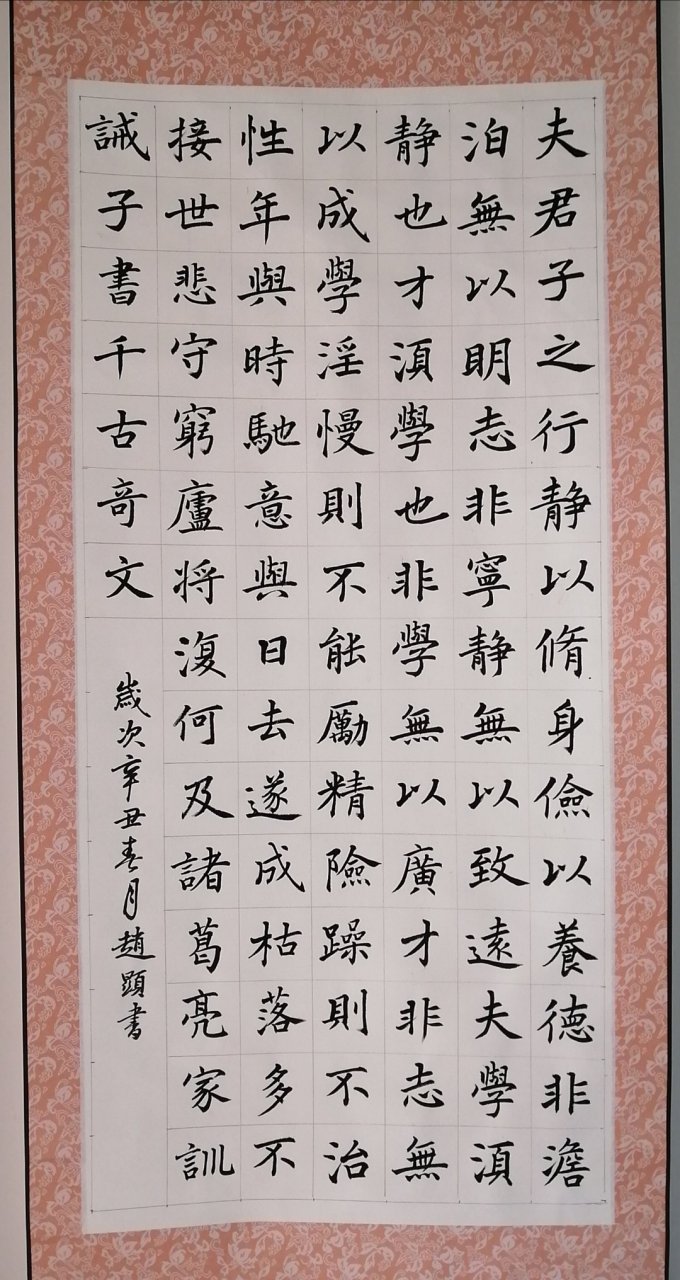 夫君子之行静以脩身儉以養徳非澹
泊無以明志非寧静無以致遠夫學湏
静也才湏學也非學無以廣才非志無
以成學淫慢則不能勵精險躁則不治
性年與時馳意與日去遂成枯落多不
接世悲守窮廬将復何及諸葛亮家訓
誡子書千古竒文
歲次辛丑春月趙顕書